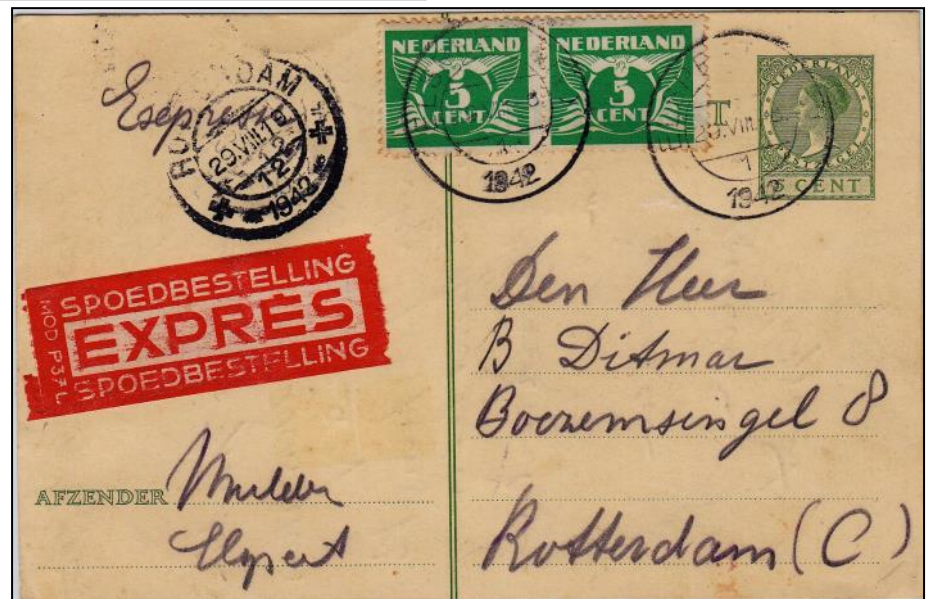 Expresse
ROTTERDAM
29.VIII.19
12
1942
NEDERLAND
5
CENT
NEDERLAND
5
CENT
1942
29.VIII
1942
NEDERLAND
POSTZEGEL
5 CENT
SPOEDBESTELLING
EXPRÈS
SPOEDBESTELLING
MOD P37L
Den Heer
B Ditmar
Boezemsingel 8
Rotterdam (C)
AFZENDER Mulder